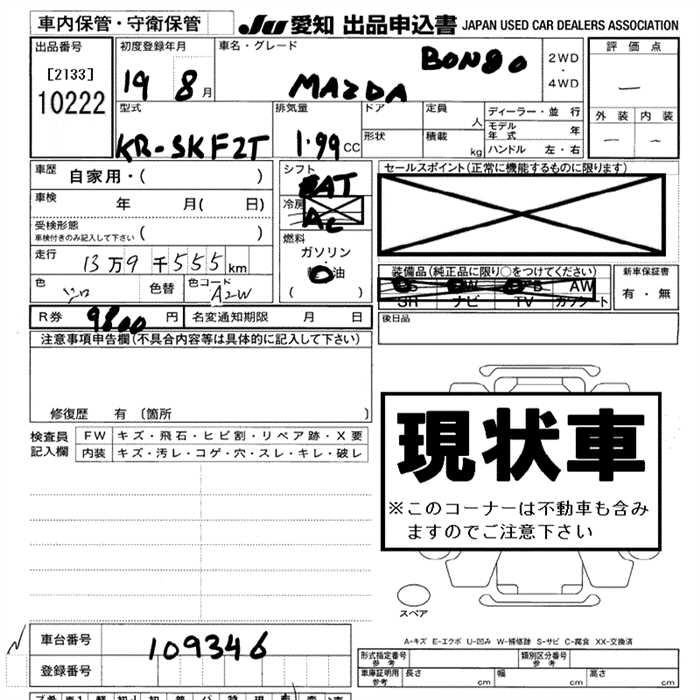 車内保管・守衛保管
JU 愛知 出品申込書 JAPAN USED CAR DEALERS ASSOCIATION
出品番号
[2133]
10222
初度登録年月
19 8月
車名・グレード
MAZDA BONGO
2WD
・
4WD
評価点
—
外装 内装
— —
型式
KR-SKF2T
排気量
1.99 CC
ドア
形状
定員 人
積載 kg
ディーラー・並行
モデル年式 年
ハンドル 左・右
車歴 自家用・( )
車検 年 月( 日)
受検形態
車検付きのみ記入して下さい ( )
走行 13万9千555km
色 シロ 色替 色コード A2W
シフト
FAT
冷房 AC
燃料
ガソリン
・
軽油
( )
セールスポイント(正常に機能するものに限ります)
装備品(純正品に限り○をつけてください)
AW
SR ナビ TV カワシート
新車保証書
有・無
R券 9800円 名変通知期限 月 日
後日品
注意事項申告欄(不具合内容等は具体的に記入して下さい)
修復歴 有〔箇所 〕
検査員記入欄
FW キズ・飛石・ヒビ割・リペア跡・X要
内装 キズ・汚レ・コゲ・穴・スレ・キレ・破レ
現状車
※このコーナーは不動車も含み
ますのでご注意下さい
スペア
A-キズ E-エクボ U-凹み W-補修跡 S-サビ C-腐食 XX-交換済
車台番号 109346
登録番号
型式指定番号
参考
類別区分番号
参考
車庫証明用
参考
長さ cm 幅 cm 高さ cm